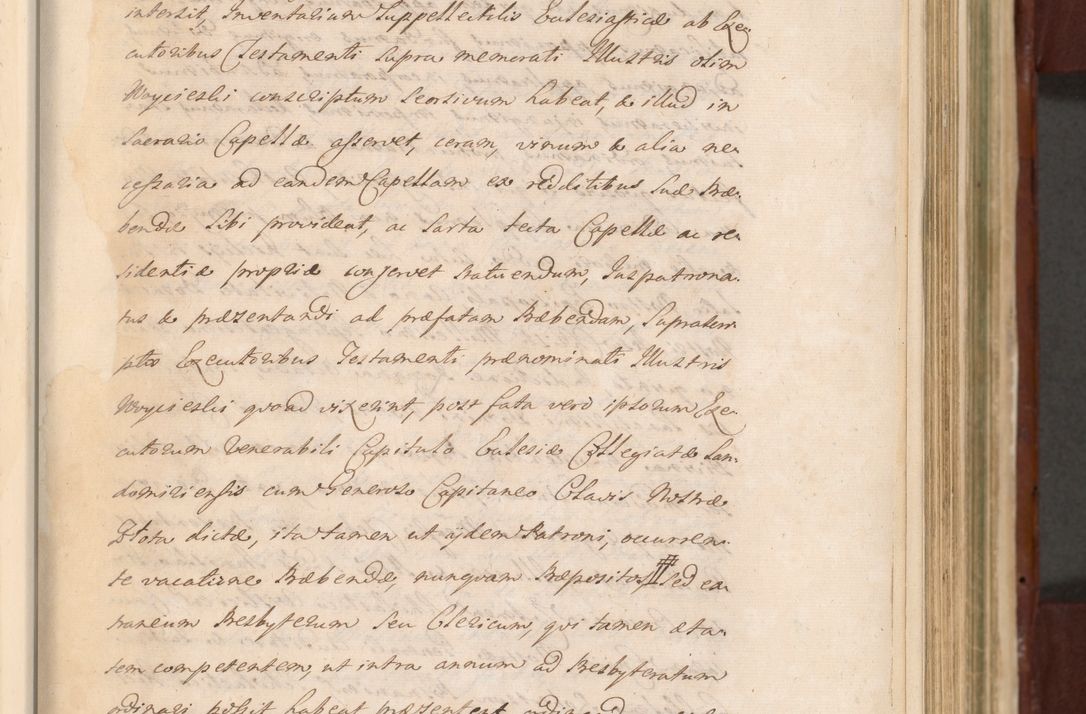 intersit, Inventarium Suppellectilis Ecclesiasticæ ab Exe-
cutoribus Testamenti supra memorati Illustris olim
Woycieski conscriptum seorsivum habeat, & illud in
Sacrario Capellæ asservet, ceram, vinum & alia ne-
cessaria ad eandem Capellam ex redditibus suæ Præ-
bendæ sibi provideat, ac sarta tecta Capellæ ac re-
sidentiæ propriæ conservet statuendum, Juspatrona-
tus & præsentandi ad præfatam Præbendam, suprascri-
ptis Executoribus Testamenti prænominati Illustris
Woycieski quoad vixerint, post fata vero ipsorum Exe-
cutorum Venerabili Capitulo Ecclesiæ Collegiatæ San-
domiriensis cum Generoso Capitaneo Clavis Nostræ
Złota dictæ, ita tamen ut ijdem Patroni, occurren-
te vacatione Præbendæ, nunquam Præpositos # sed ex-
traneum Presbyterum seu Clericum, qui tamen æta-
tem competentem, ut intra annum ad Presbyteratum
ordinari possit habeat præsentent